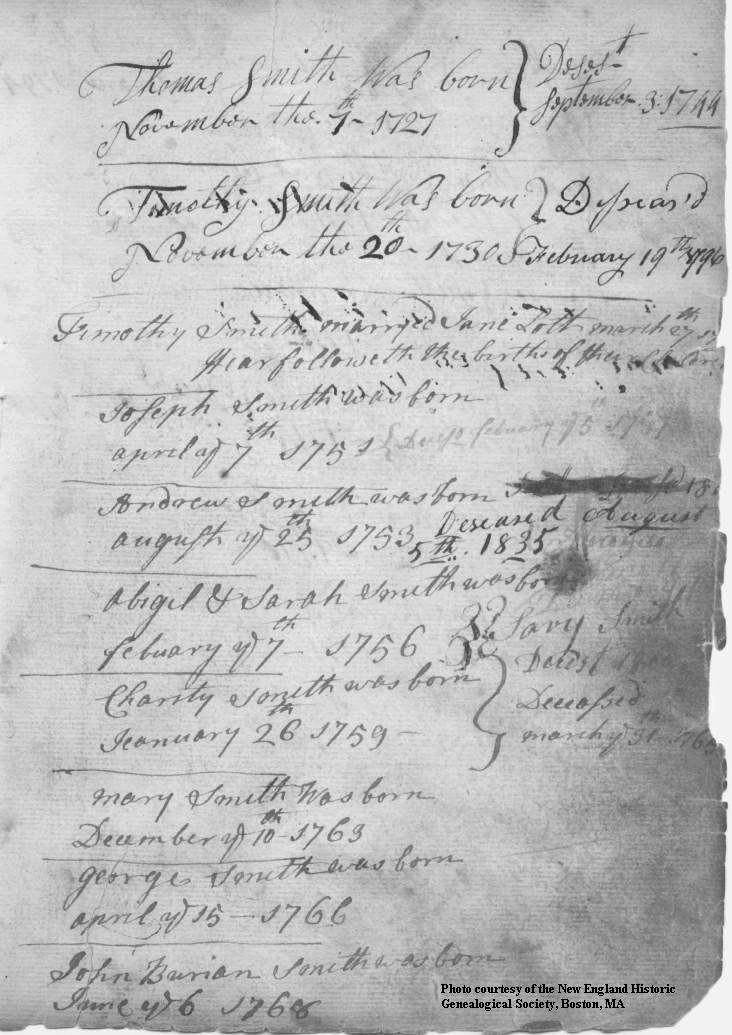 Thomas Smith Was born
November the 7th 1727
Deses't
September 3 1744
Timothy Smith Was born
November the 20th 1730
Deseas'd
February 19th 1796
Timothy Smith marryed Jane Lott march
Hear followeth the births of their
Joseph Smith was born
april ye 7th 1751
Deces'd febuary ye 5th
Andrew Smith was born
august ye 25th 1753
Deseased August
5th. 1835
abigil & Sarah Smith was born
febuary ye 7th 1756
Sary Smith
Charity Smith was born
Jeanuary 26th 1759
Deceassed
march ye 31th
mary Smith Was born
December ye 10th 1763
george Smith was born
april ye 15 1766
John Burian Smith was born
June ye 6 1768
Photo courtesy of the New England Historic
Genealogical Society, Boston, MA